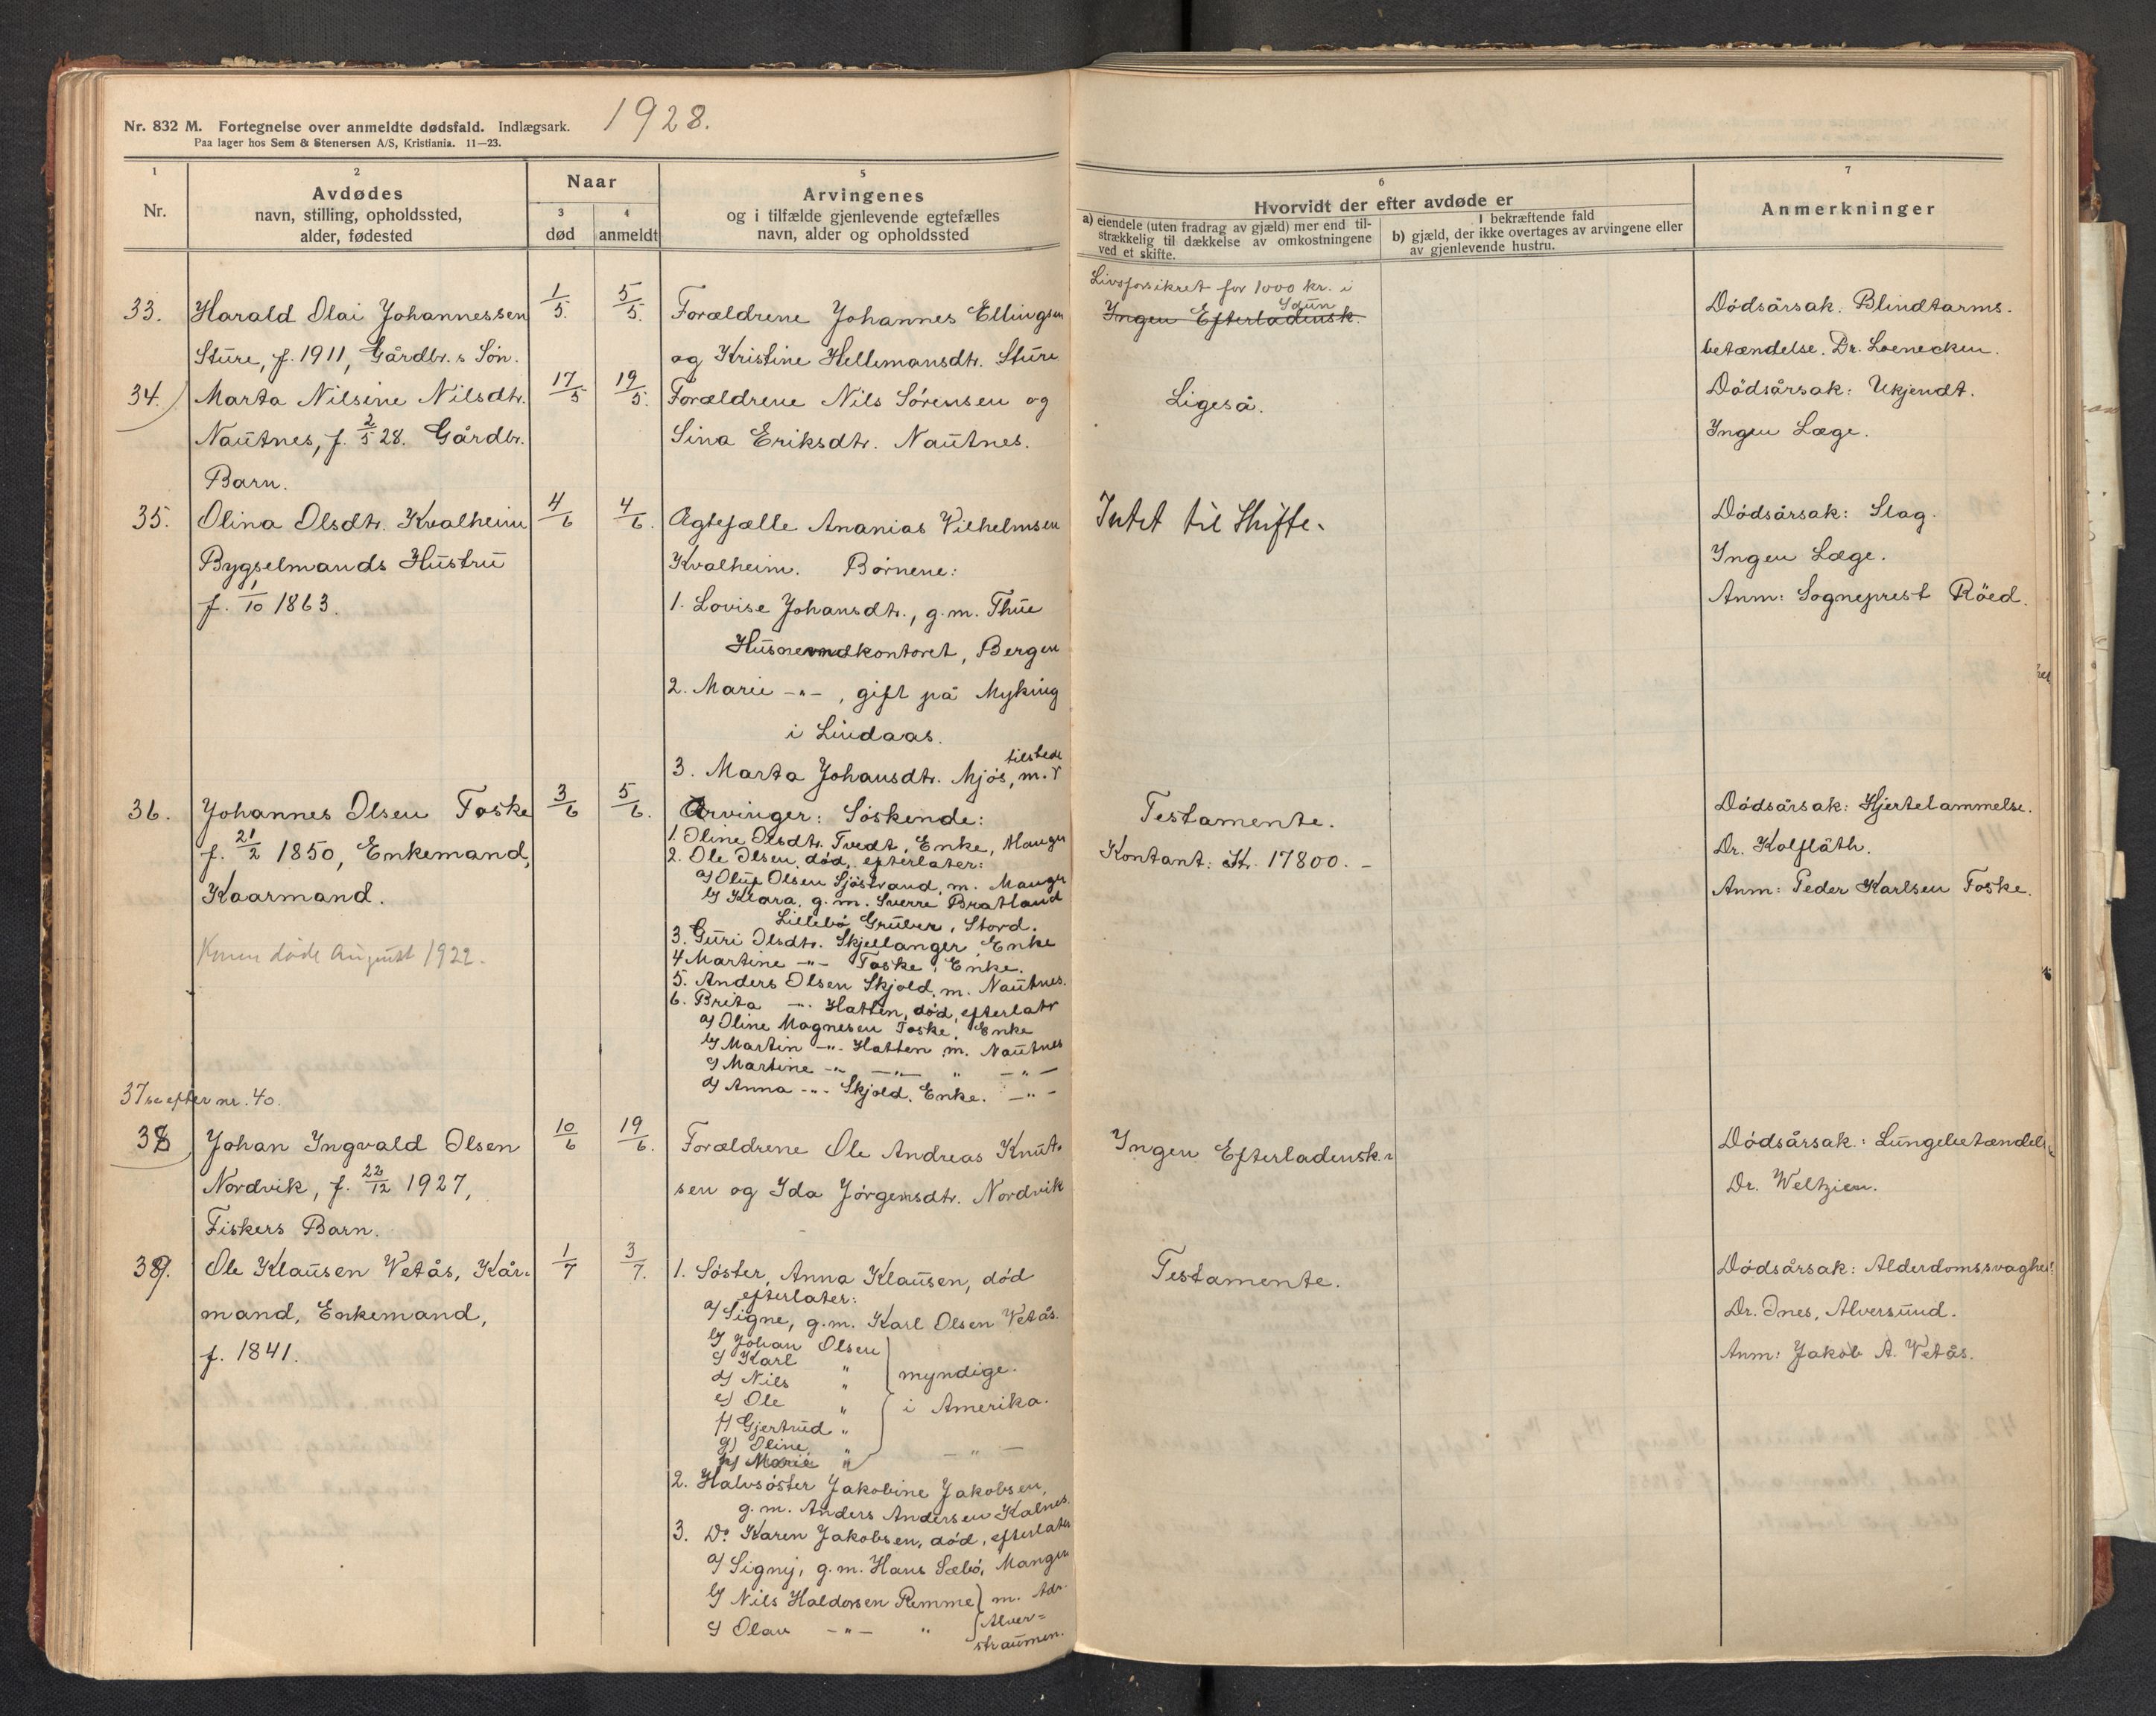 Nr. 832 M. Fortegnelse over anmeldte dødsfald. Indlægsark.
Paa lager hos Sem & Stenersen A/S, Kristiania. 11—23.
1928.
1
Nr.
2
Avdødes
navn, stilling, opholdssted,
alder, fødested
Naar
3
død
4
anmeldt
5
Arvingenes
og i tilfælde gjenlevende egtefælles
navn, alder og opholdssted
6
Hvorvidt der efter avdøde er
a) eiendele (uten fradrag av gjæld) mer end til-
strækkelig til dækkelse av omkostningene
ved et skifte.
I bekræftende fald
b) gjæld, der ikke overtages av arvingene eller
av gjenlevende hustru.
7
Anmerkninger
33.
Harald Olai Johannessen
Sture, f. 1911, Gårdbr.s Søn.
1/5.
5/5.
Forældrene Johannes Ellingsen
og Kristine Hellemansdtr. Sture
Livsforsikret for 1000 kr. i
Idun
Ingen Efterladensk.
Dødsårsak. Blindtarms-
betændelse. Dr. Loenecken.
34.
Marta Nilsine Nilsdtr.
Nautnes, f. 2/5 28. Gårdbr.
Barn.
17/5
19/5.
Forældrene Nils Sørensen og
Sina Eriksdtr. Nautnes.
Ligeså.
Dødsårsak: Ukjendt.
Ingen Læge.
35.
Olina Olsdtr. Kvalheim
Bygselmands Hustru
f. 1/10 1863.
4/6
4/6.
Ægtefælle Ananias Vilhelmsen
Kvalheim. Børnene:
1. Lovise Johansdtr., g.m. Thue
Husnevndkontoret, Bergen
2. Marie -"-, gift på Myking
i Lindaas.
3. Marta Johansdtr. Mjøs, m.
tilstede
Intet til Skifte.
Dødsårsak: Slag.
Ingen Læge.
Anm: Sogneprest Röed.
36.
Johannes Olsen Toske
f. 21/2 1850, Enkemand,
Kaarmand.
Konen døde August 1922.
3/6
5/6.
Arvinger: Søskende:
1. Oline Olsdtr. Tvedt, Enke, Manger
2. Ole Olsen, død, efterlater:
a) Oluf Olsen Sjøstrand, m. Manger
b) Klara, g.m. Sverre Bratland
Lillebø Gruber, Stord.
3. Guri Olsdtr. Skjellanger, Enke
4 Martine -"- Toske, Enke.
5. Anders Olsen Skjold, m. Nautnes.
6. Brita -"- Hatten, død, efterlatr
a) Oline Magnesen Toske, Enke
b) Martin -"- Hatten m. Nautnes
c) Martine -"- -"- " -"-
d) Anna -"- Skjold. Enke. -"-
Testamente.
Kontant: Kr. 17800.-
Dødsårsak: Hjertelammelse.
Dr. Kolflåth.
Anm: Peder Karlsen Toske.
37 se efter nr. 40.
38
Johan Ingvald Olsen
Nordvik, f. 22/12 1927,
Fiskers Barn.
10/6
19/6.
Forældrene Ole Andreas Knut-
sen og Ida Jørgensdtr. Nordvik
Ingen Efterladensk.
Dødsårsak: Lungebetændelse
Dr. Weltzien.
39.
Ole Klausen Vetås, Kår-
mand, Enkemand,
f. 1841.
1/7
3/7.
1. Søster, Anna Klausen, død
efterlater:
a) Signe, g.m. Karl Olsen Vetås.
b) Johan Olsen
c) Karl "
d) Nils "
myndige.
e) Ole "
i Amerika.
f) Gjertrud "
g) Oline "
h) Marie " -"-
2. Halvsøster Jakobine Jakobsen,
g.m. Anders Andersen Kalnes.
3. Do Karen Jakobsen, død, efterlater
a) Signy, g.m. Hans Sæbø, Manger
b) Nils Haldorsen Remme m. Adr.
c) Olav -"- "
Alver=
straumen.
Testamente.
Dødsårsak: Alderdomssvaghet
Dr. Ines, Alversund.
Anm: Jakob A. Vetås.